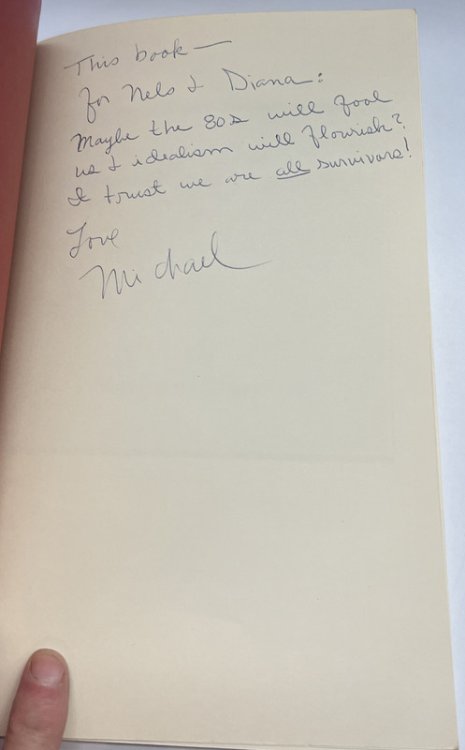 This book —
for Nels & Diana:
Maybe the 80s will fool
us & idealism will flourish?
I trust we are all survivors!
Love
Michael